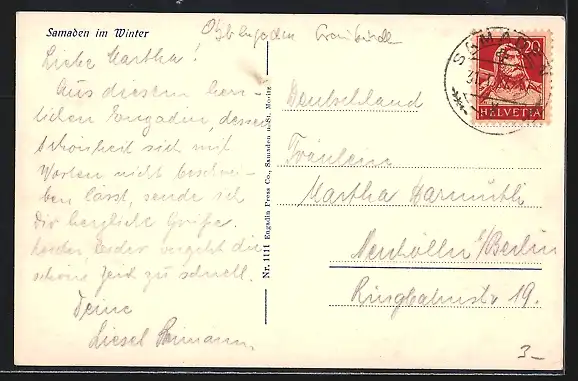 Samaden im Winter
Liebe Martha!
Aus diesem herr-
lichen Engadin, dessen
Schönheit sich mit
Worten nicht beschrei-
ben lässt, sende ich
Dir herzliche Grüße.
Leider, leider vergeht die
schöne Zeit zu schnell.
Deine
Liesel
Nr. 1111 Engadin Press Co., Samaden u. St. Moritz
20
HELVETIA
Deutschland
Fräulein
Martha Harmuth
Neukölln b/Berlin
Ringbahnstr 19.
3-